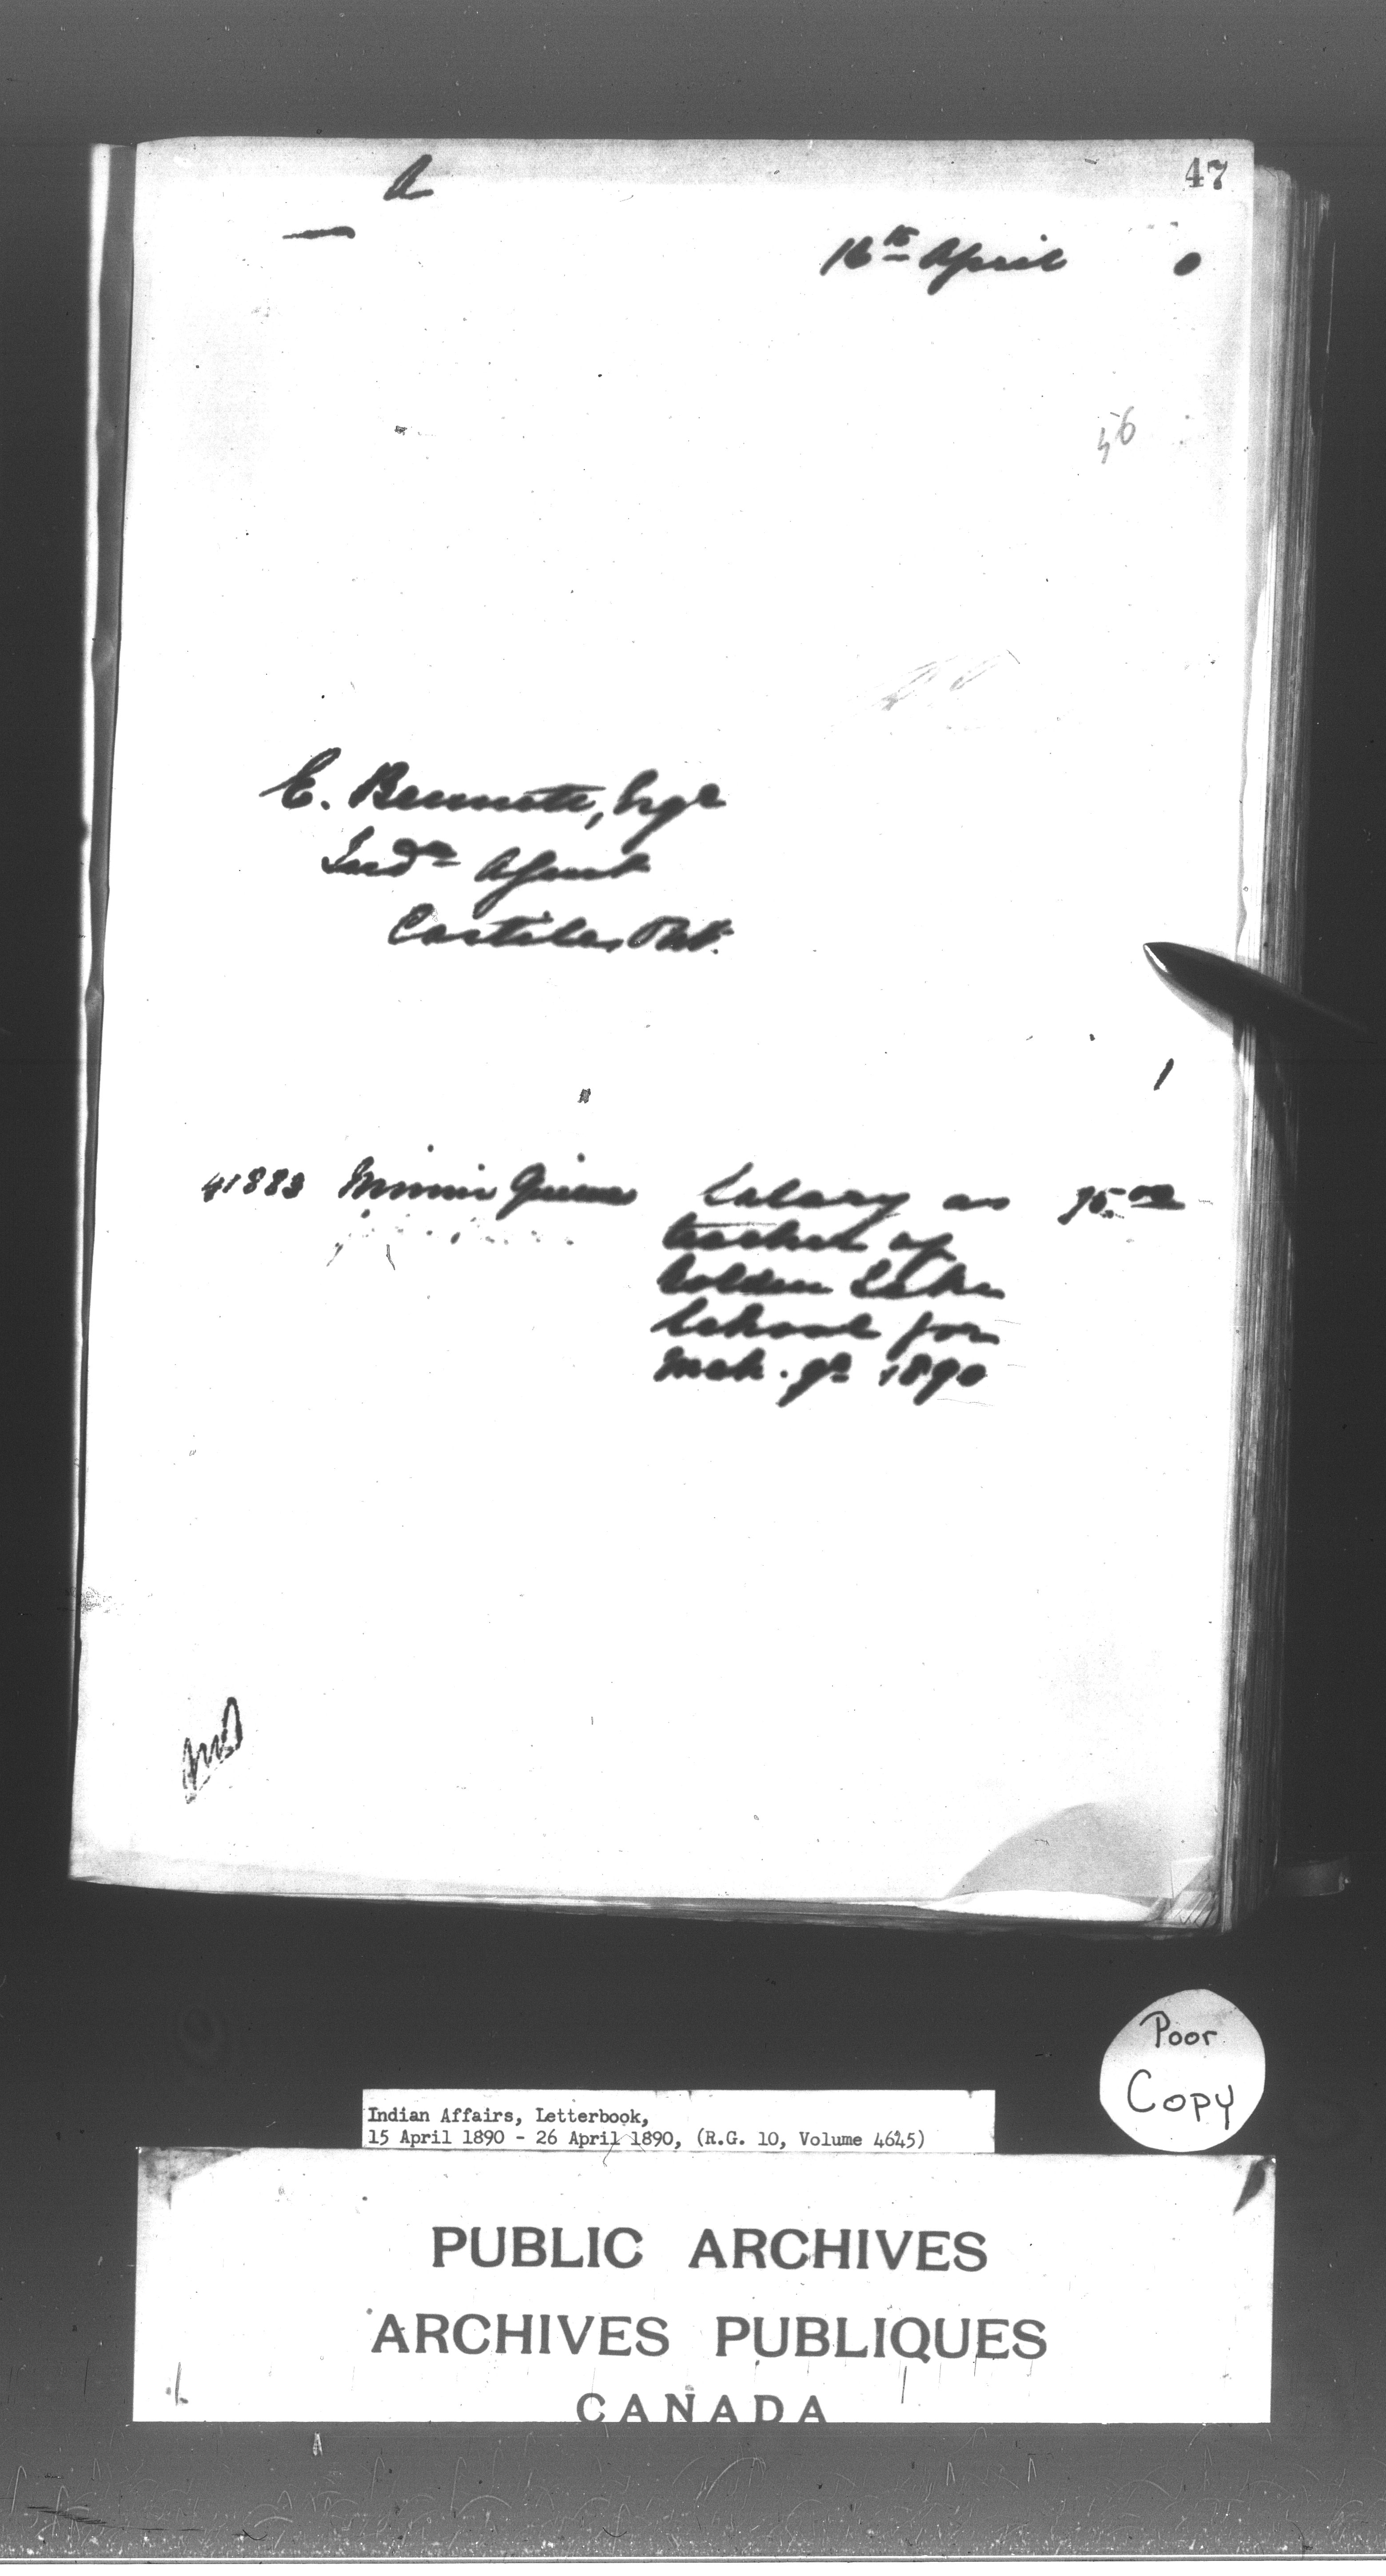 47
A
16th April 0
56
E. Bennett, Esqre
Indn Agent
Castile, Ont.
41883 Minnie Salary as 75.00
teacher of
Golden Lake
School for
Mch. qr 1890
Poor
Copy
Indian Affairs, Letterbook,
15 April 1890 - 26 April 1890, (R.G. 10, Volume 4645)
PUBLIC ARCHIVES
ARCHIVES PUBLIQUES
CANADA